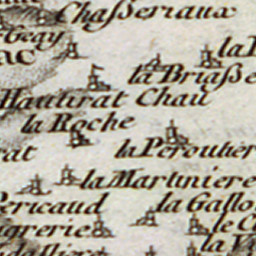 Chasseriaux
Geay
AC
la Briasse
Hautirat Chau
la Roche
rat
la Peroutier
la Martiniere
Pericaud
la Gallo
grerie